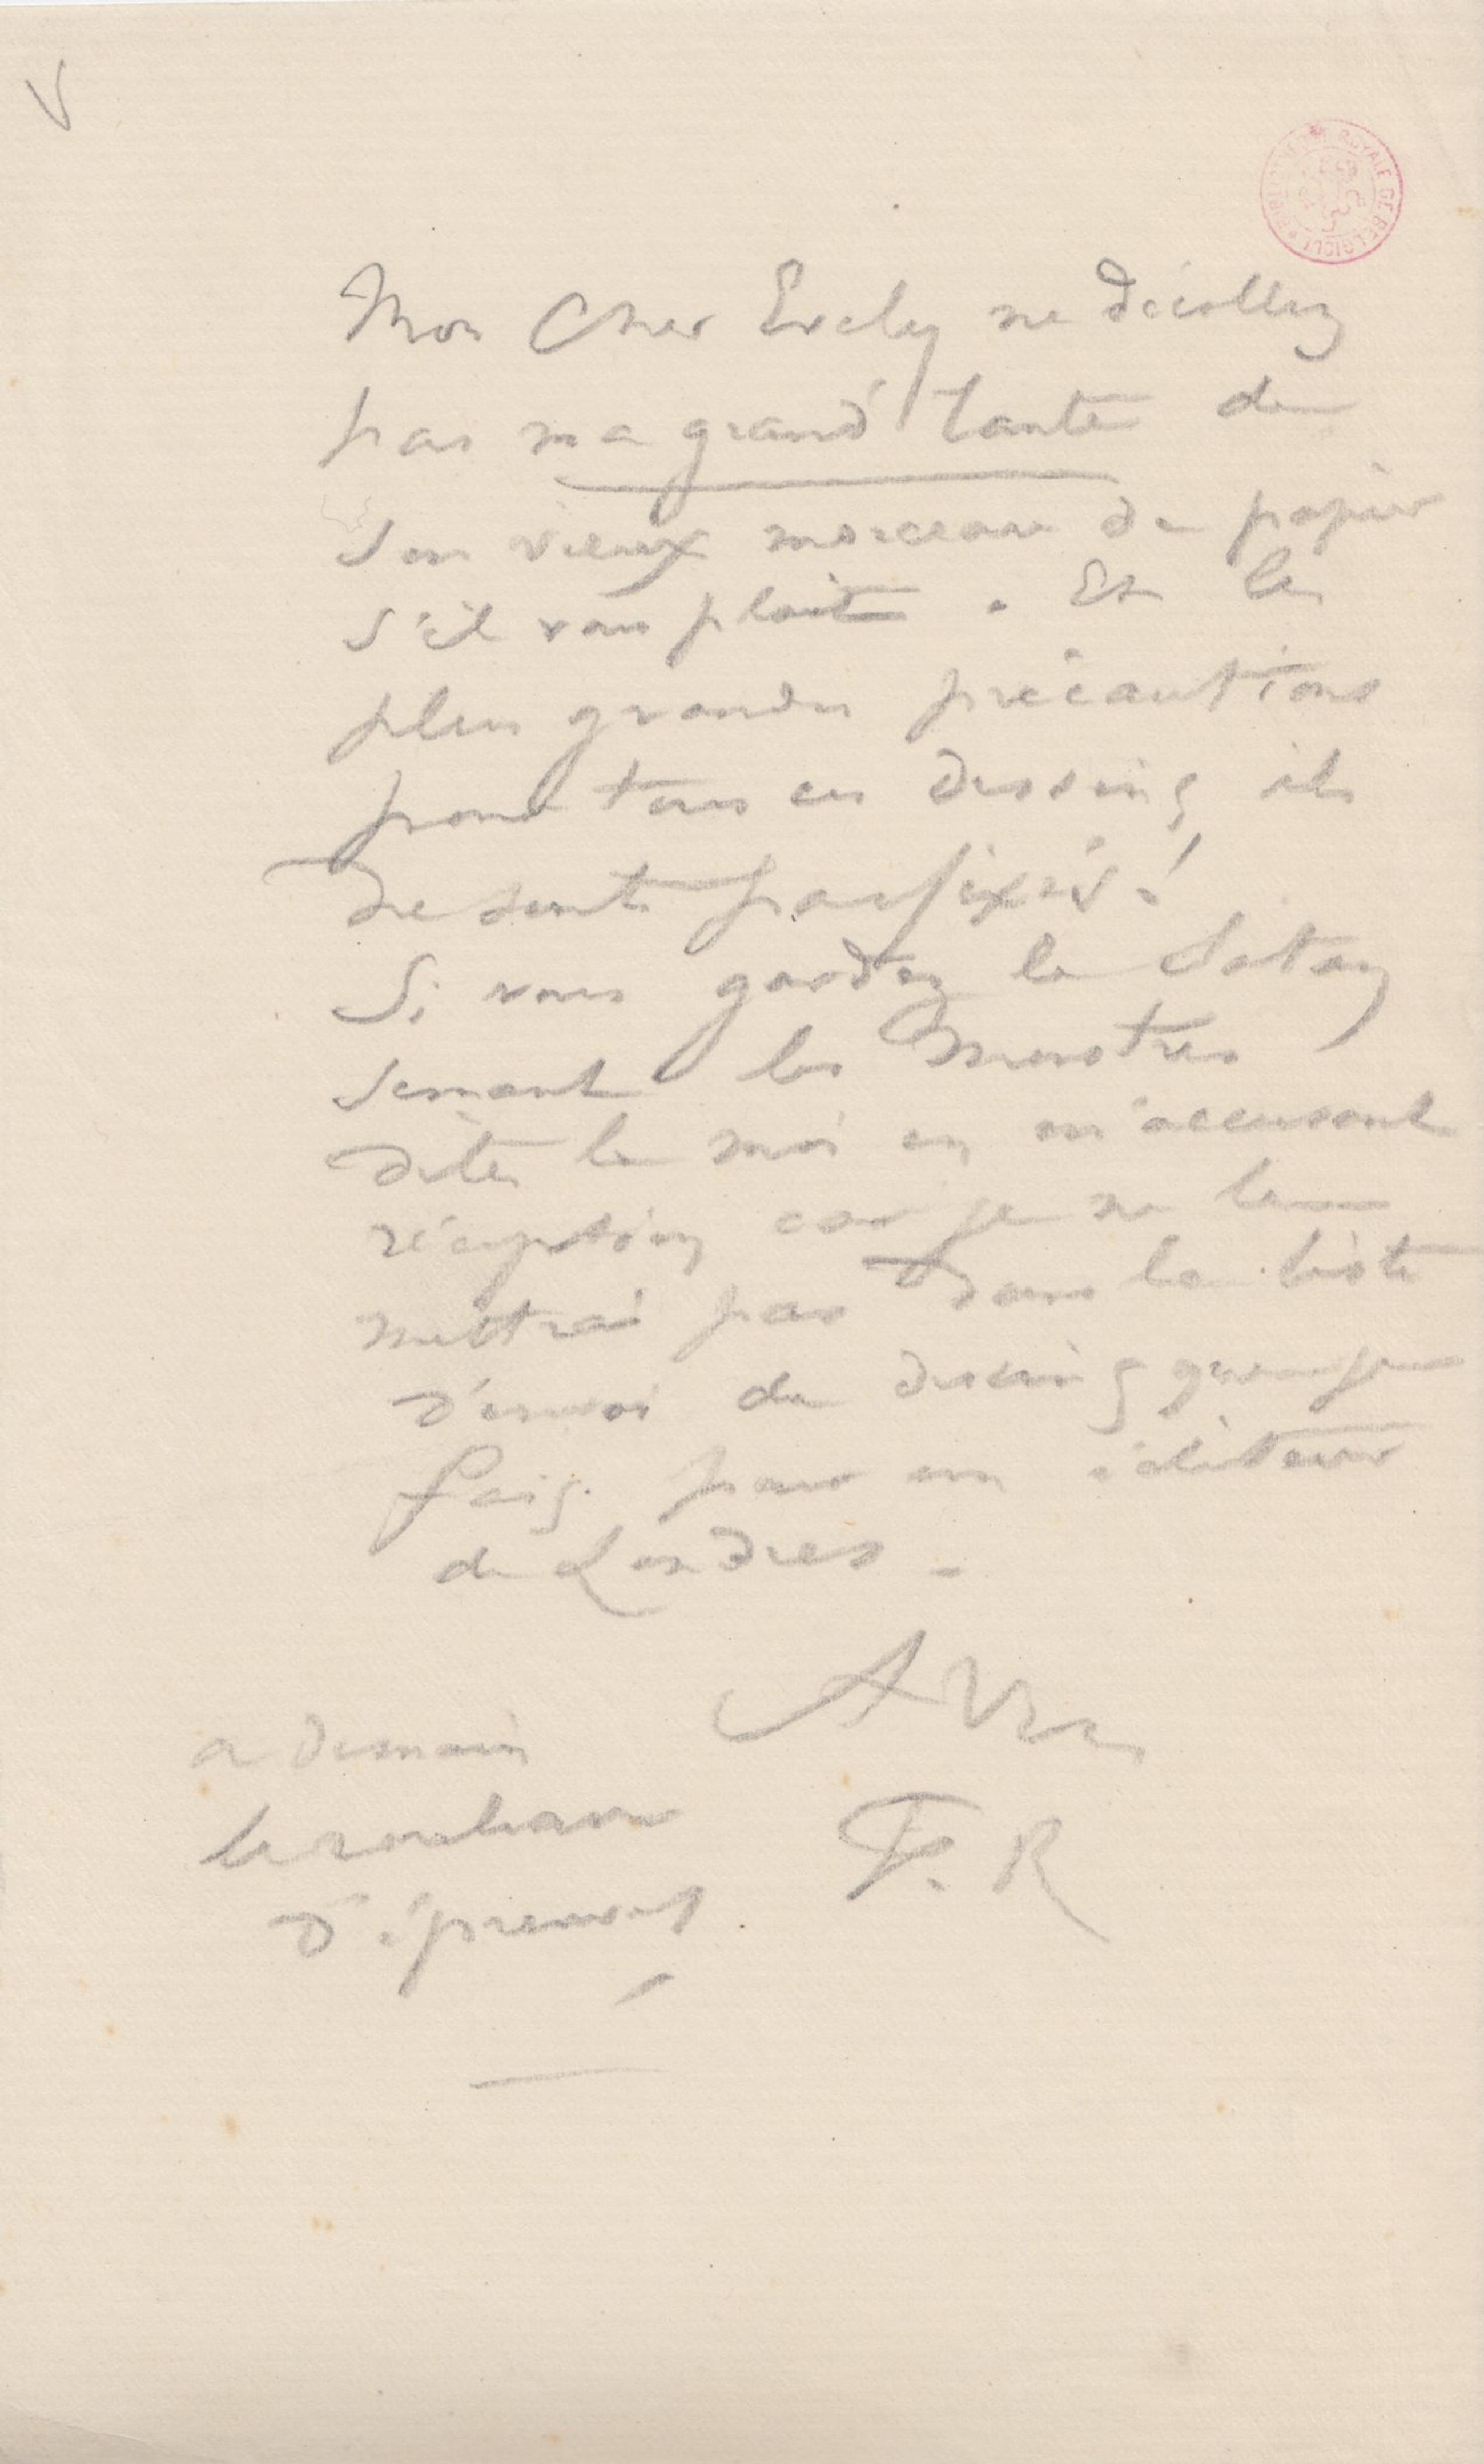 V
BIBLIOTHÈQUE ROYALE DE BELGIQUE
Mon Cher Evely ne décollez
pas ma grand' tante de
son vieux morceau de papier
s'il vous plait. Et les
plus grandes précautions
pour tous ces dessins ils
ne sont pas fixés!
Si vous gardez le Satan
semant les Monstres
dites le moi en m'accusant
réception car je ne le
mettrai pas dans la liste
d'envoi de dessins que je
fais pour un éditeur
de Londres.
A Vs
F. R
a demain
le rouleau
d'épreuves